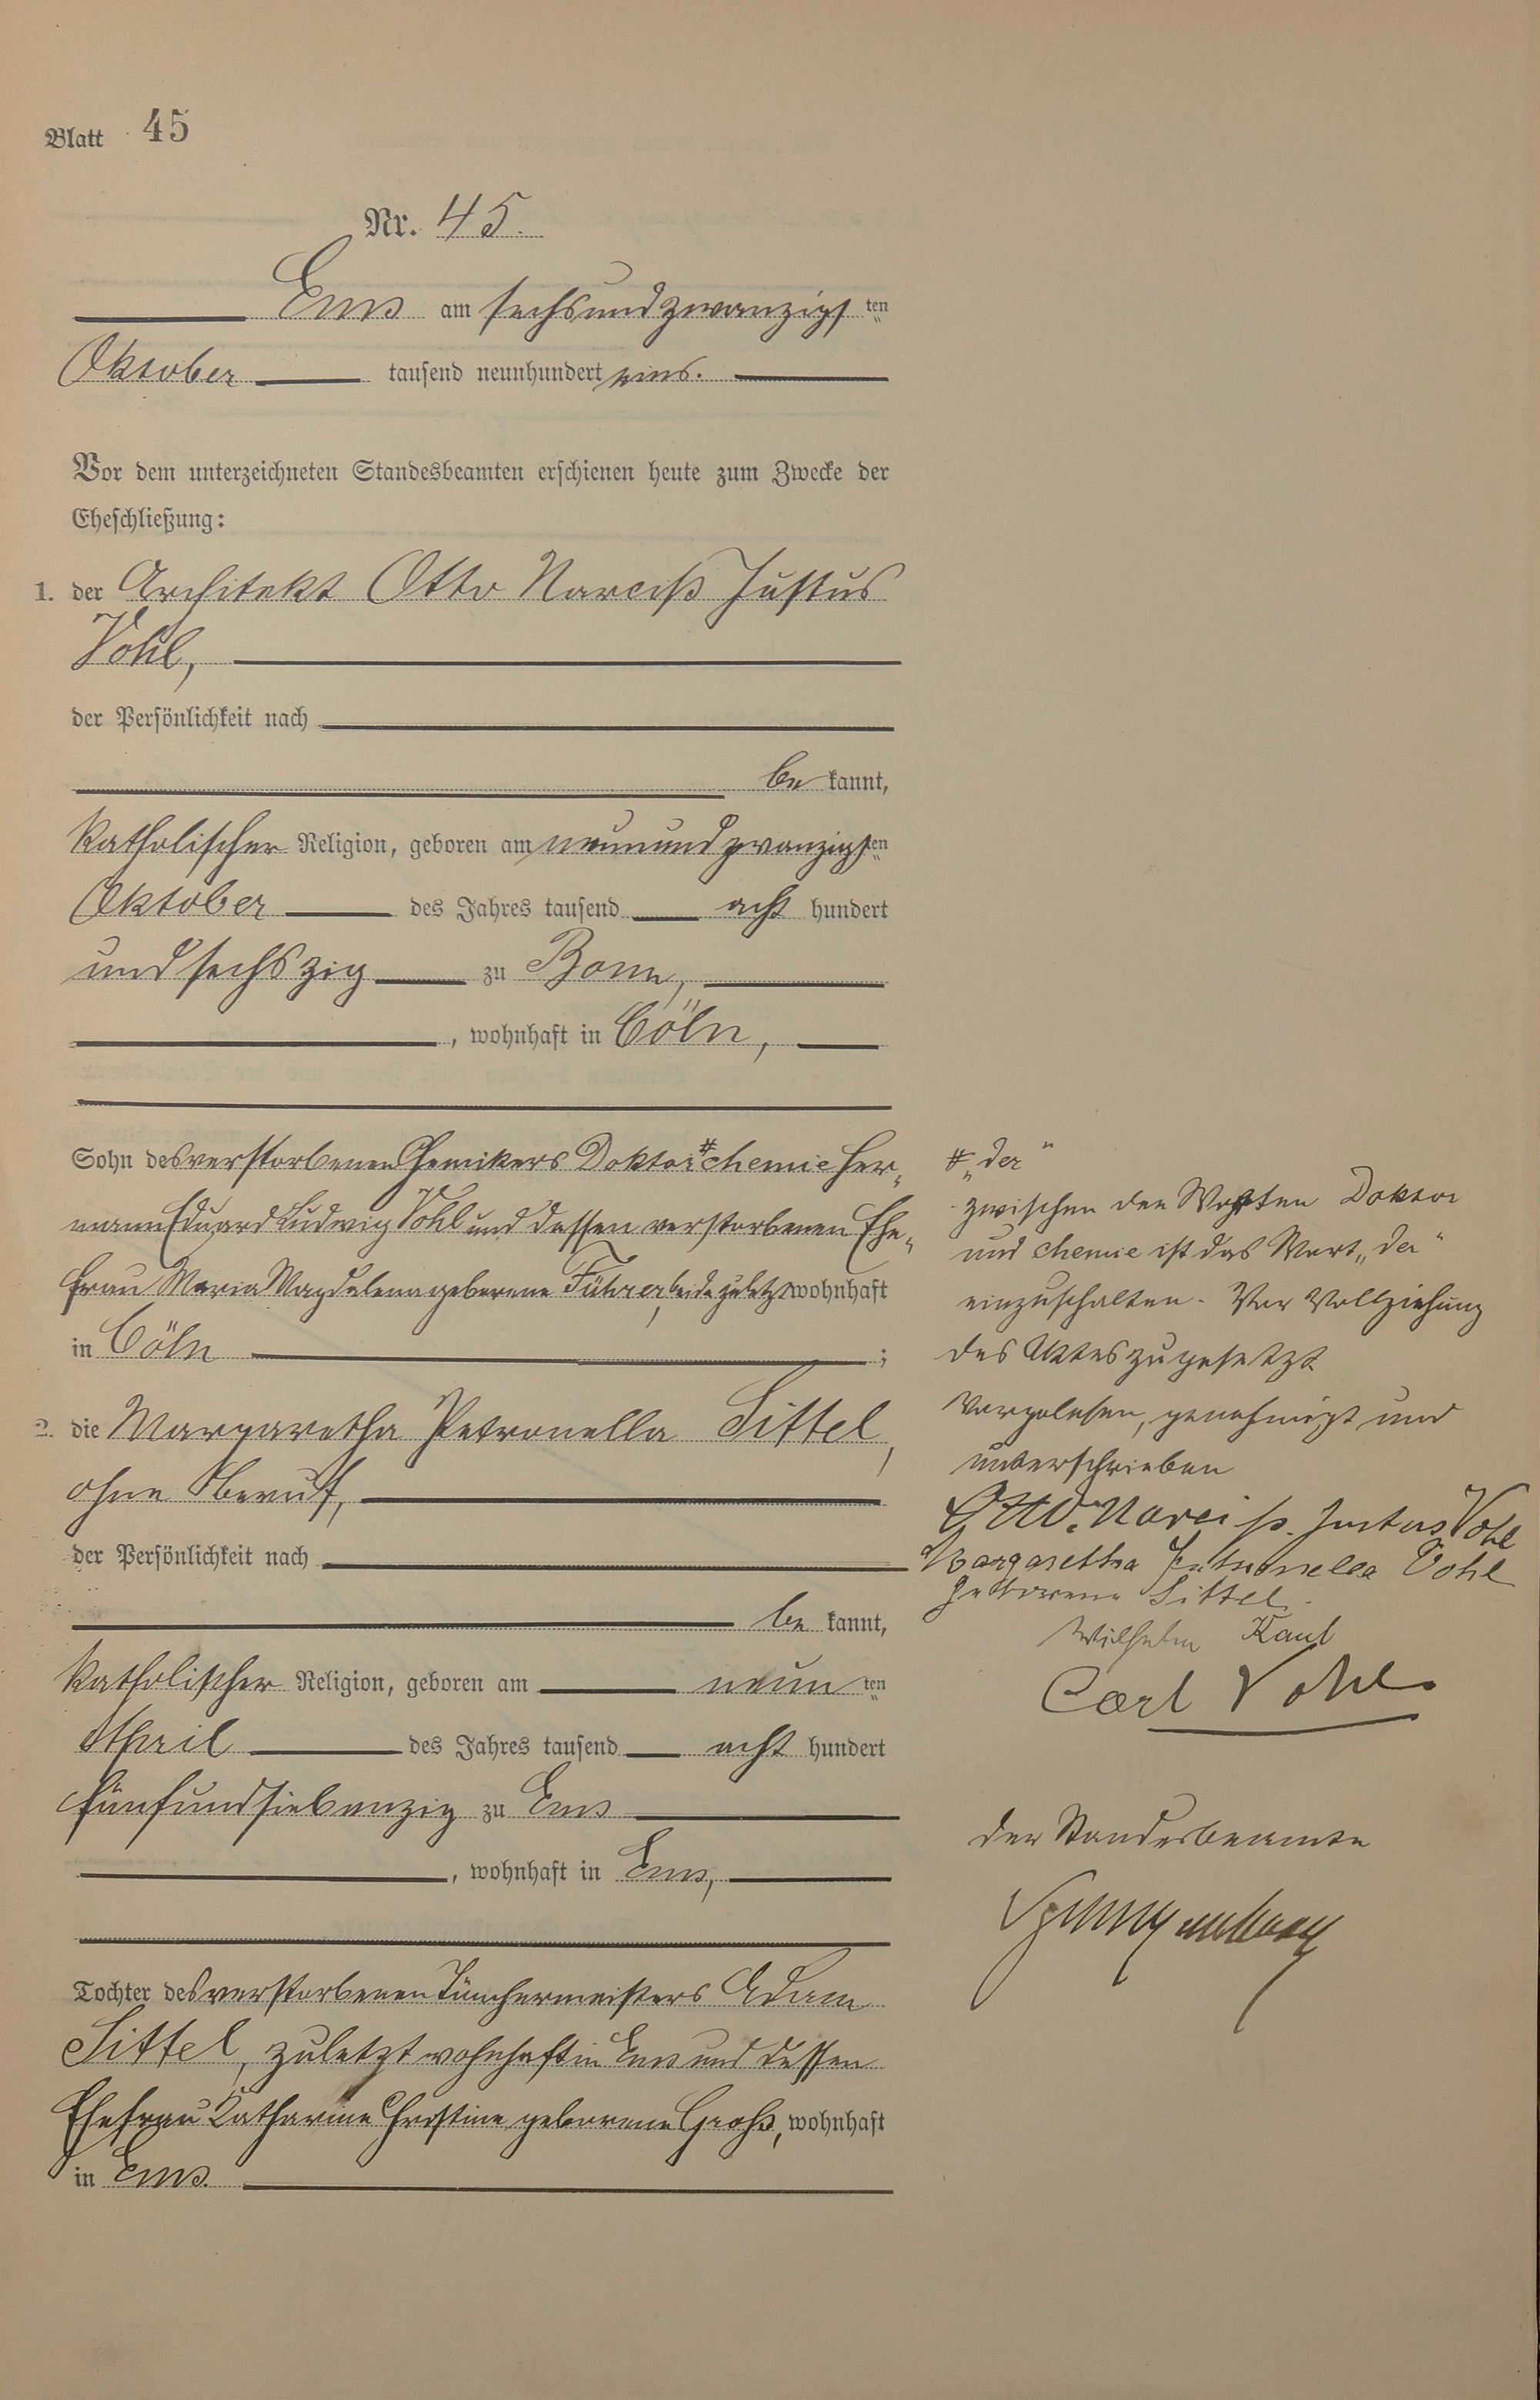 Blatt 45
Nr. 45.
Ems am sechsundzwanzigsten
Oktober tausend neunhundert eins.
Vor dem unterzeichneten Standesbeamten erschienen heute zum Zwecke der
Eheschließung:
1. der Architekt Otto Narciß Justus
Vohl,
der Persönlichkeit nach
be kannt,
katholischer Religion, geboren am neunundzwanzigsten
Oktober des Jahres tausend acht hundert
undsechszig zu Bonn,
, wohnhaft in Cöln,
Sohn des verstorbenen Chemikers Doktor # chemie Her-
mann Eduard Ludwig Vohl und dessen verstorbenen Ehe-
frau Maria Magdalena geborene Führer, beide zuletzt wohnhaft
in Cöln ;
2. die Margaretha Petronella Sittel,
ohne Beruf,
der Persönlichkeit nach
be kannt,
katholischer Religion, geboren am neunten
April des Jahres tausend acht hundert
fünfundsiebenzig zu Ems
, wohnhaft in Ems,
Tochter des verstorbenen Tünchermeisters Adam
Sittel, zuletzt wohnhaft in Ems und dessen
Ehefrau Katharine Christine geborene Groß, wohnhaft
in Ems.
# „der"
zwischen den Worten Doktor
und chemie ist das Wort „der"
einzuschalten. Vor Vollziehung
des Aktes zugesetzt
Vorgelesen, genehmigt und
unterschrieben
Otto. Narciss. Justus Vohl
Margaretha Petronella Vohl
geborene Sittel.
Wilhelm Kaul
Carl Vohl.
Der Standesbeamte